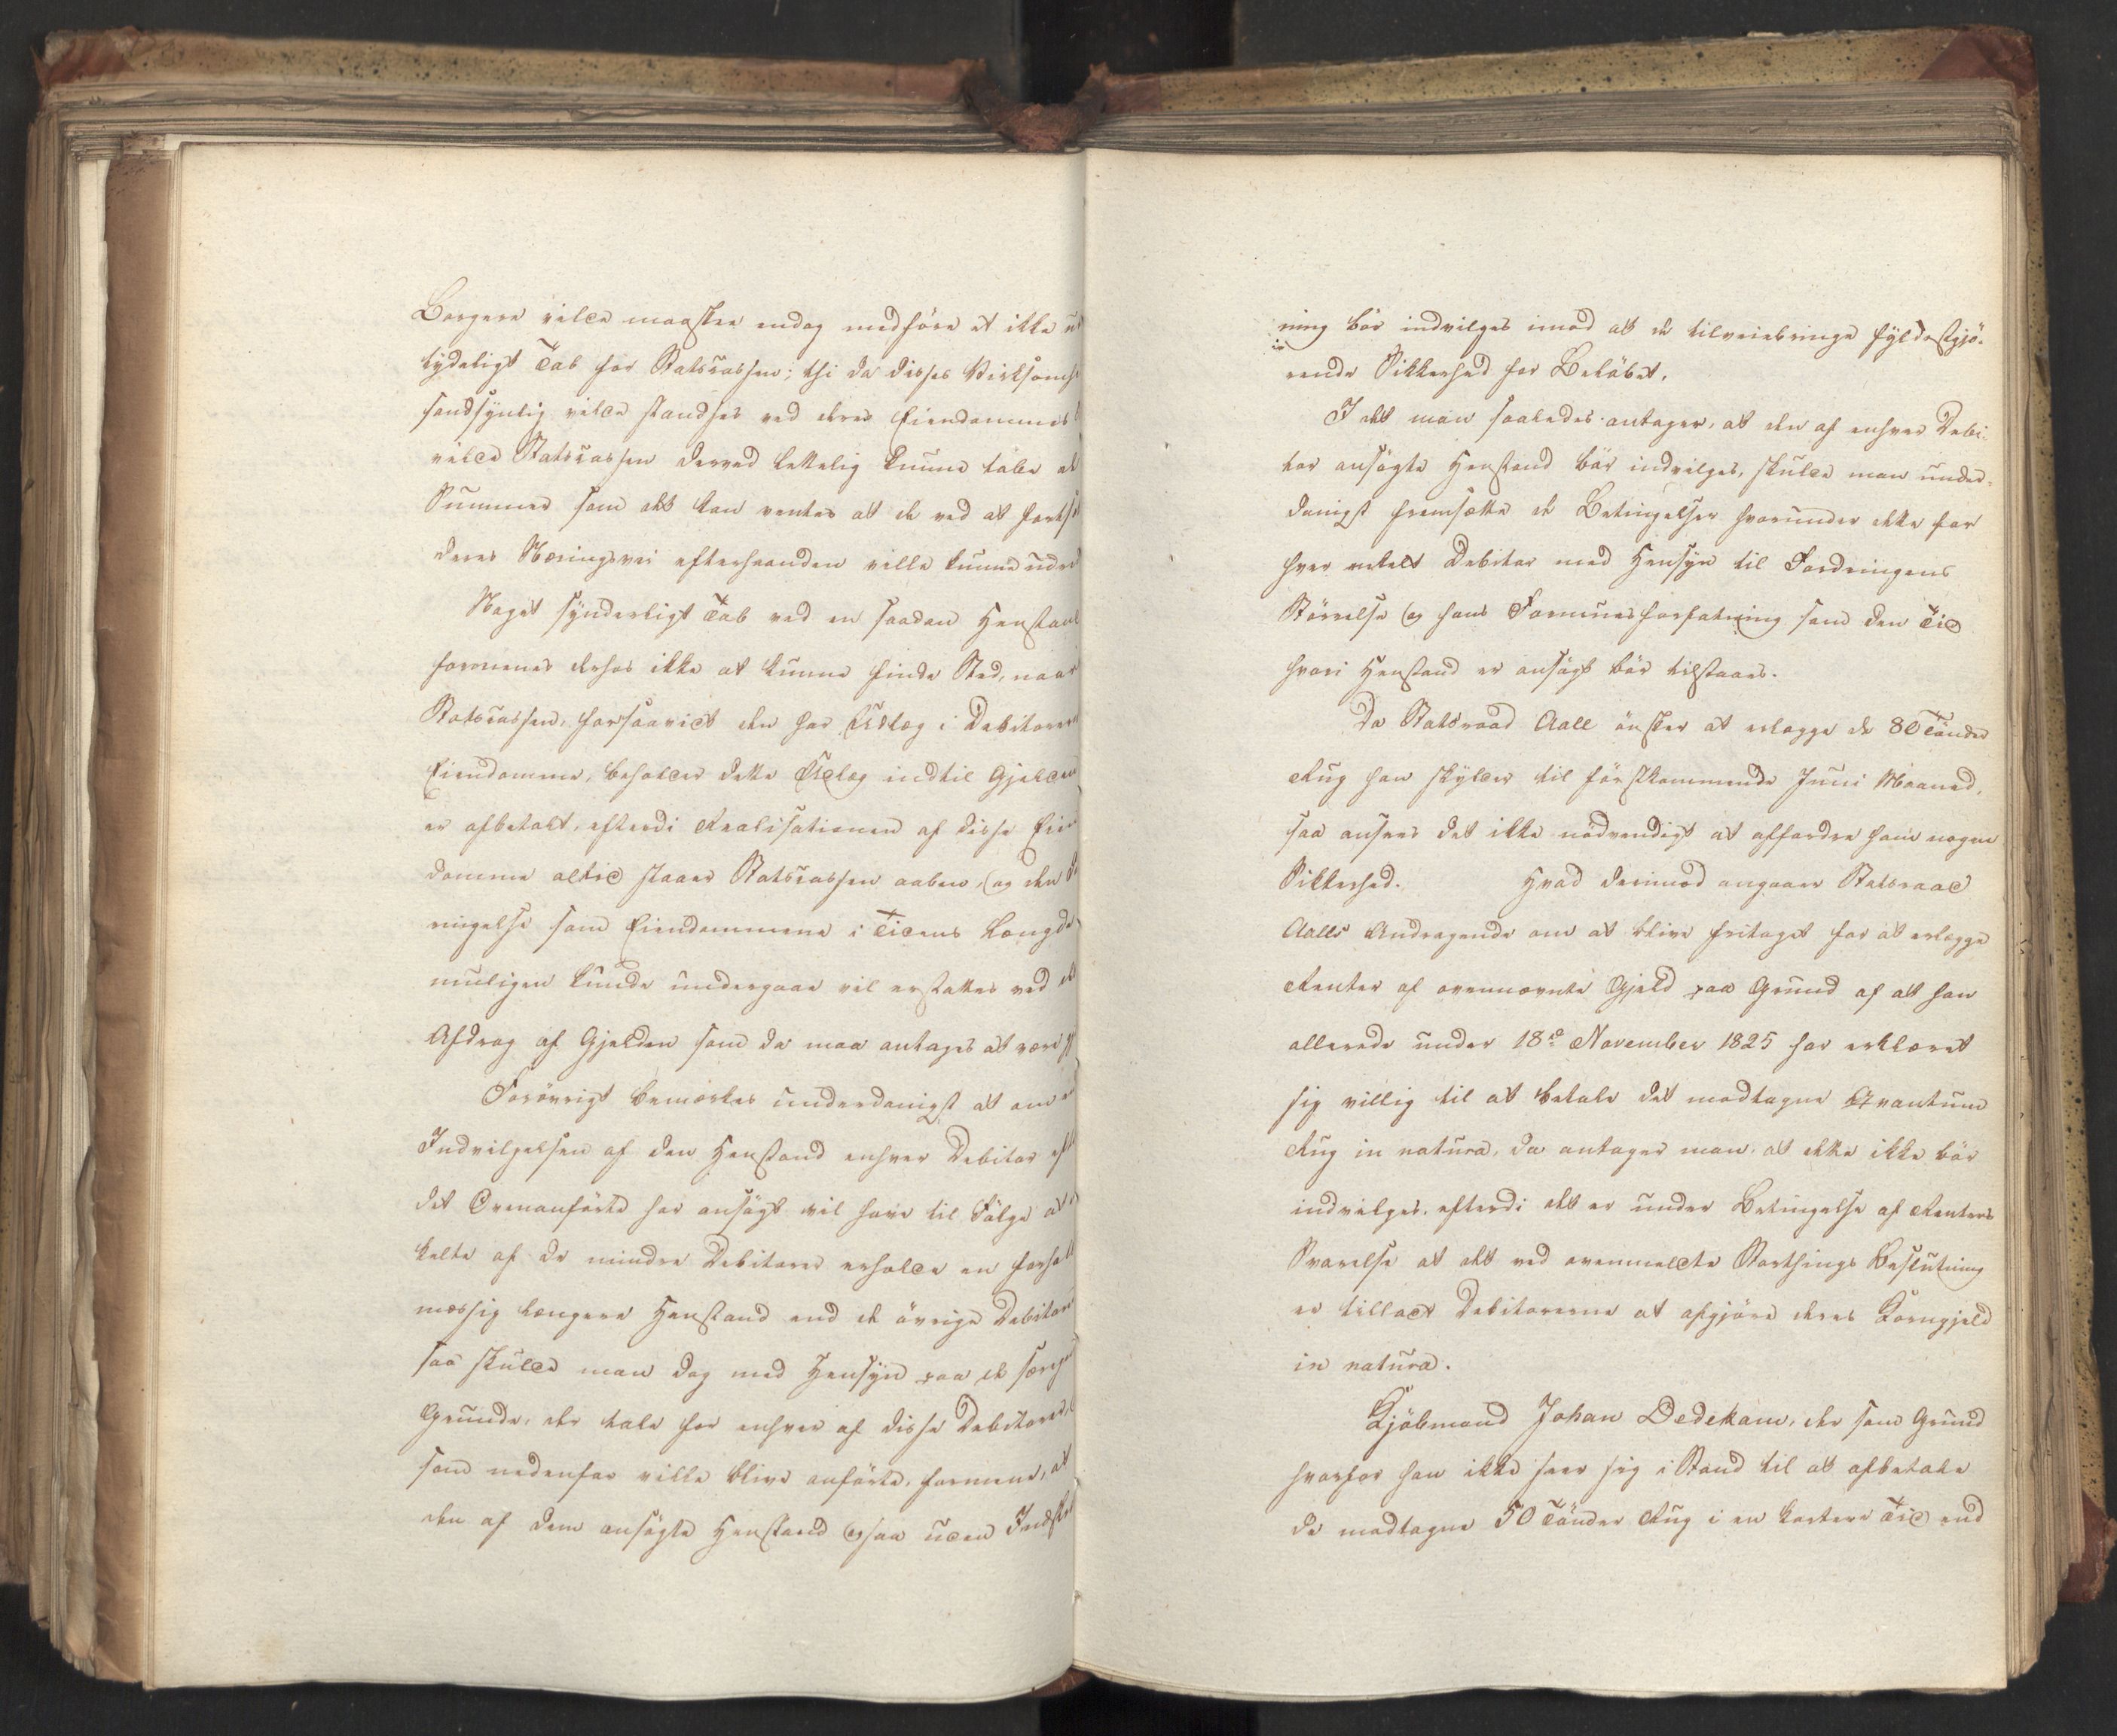 Borgere vilde maaskee endog medföre et ikke u
tydeligt Tab for Statscassen; thi da disses Virksomh
sandsynlig vilde standses ved deres Eiendommes
vilde Statscassen derved lettelig kunne tabe de
Summer som det kan ventes at de ved at forts
deres Næringsvei efterhaanden ville kunne udre
Noget synderligt Tab ved en saadan Henstand
formenes derhos ikke at kunne finde Sted, naar
Statscassen, forsaavidt den har Udlæg i Debitorer
Eiendomme, beholder dette Udlæg indtil Gjelden
er afbetalt, efterdi Realisationen af disse Eien
domme altid staaer Statscassen aaben, og den
ringelse som Eiendommene i Tidens Længde
muligen kunde undergaae vil erstattes ved de
Afdrag af Gjelden som da maa antages at være
Forövrigt bemærkes underdanigst at om e
Indvilgelsen af den Henstand enhver Debitor eft
det Ovenanförte har ansögt vil have til Fölge at
kelte af de mindre Debitorer erholde en forhol
mæssig længere Henstand end de övrige Debitore
saa skulde man dog med Hensyn paa de særegne
Grunde, der tale for enhver af disse Debitorer,
som nedenfor ville blive anförte, formene, at
den af dem ansögte Henstand ogsaa uden Indskr
ning bör indvilges imod at de tilveiebringe fyldestgjö-
rende Sikkerhed for Belöbet.
I det man saaledes antager, at den af enhver Debi-
tor ansögte Henstand bör indvilges, skulde man under-
danigst fremsætte de Betingelser hvorunder dette for
hver enkelt Debitor med Hensyn til Fordringens
Störrelse og hans Formuesforfatning samt den Tid
hvori Henstand er ansögt bör tilstaaes.
Da Statsraad Aall önsker at erlægge de 80 Tönder
Rug han skylder til förstkommende Juni Maaned,
saa ansees det ikke nödvendigt at affordre ham nogen
Sikkerhed. Hvad derimod angaaer Statsraad
Aalls Andragende om at blive fritaget for at erlægge
Renter af ovennævnte Gjeld paa Grund af at han
allerede under 18de November 1825 har erklæret
sig villig til at betale det modtagne Qvantum
Rug in natura, da antager man, at dette ikke bör
indvilges, efterdi det er under Betingelse af Renters
Svarelse at det ved ovenmeldte Storthings Beslutning
er tilladt Debitorerne at afgjöre deres Korngjeld
in natura.
Kjöbmand Johan Dedekam, der som Grund
hvorfor han ikke seer sig i Stand til at afbetale
de modtagne 50 Tönder Rug i en kortere Tid end